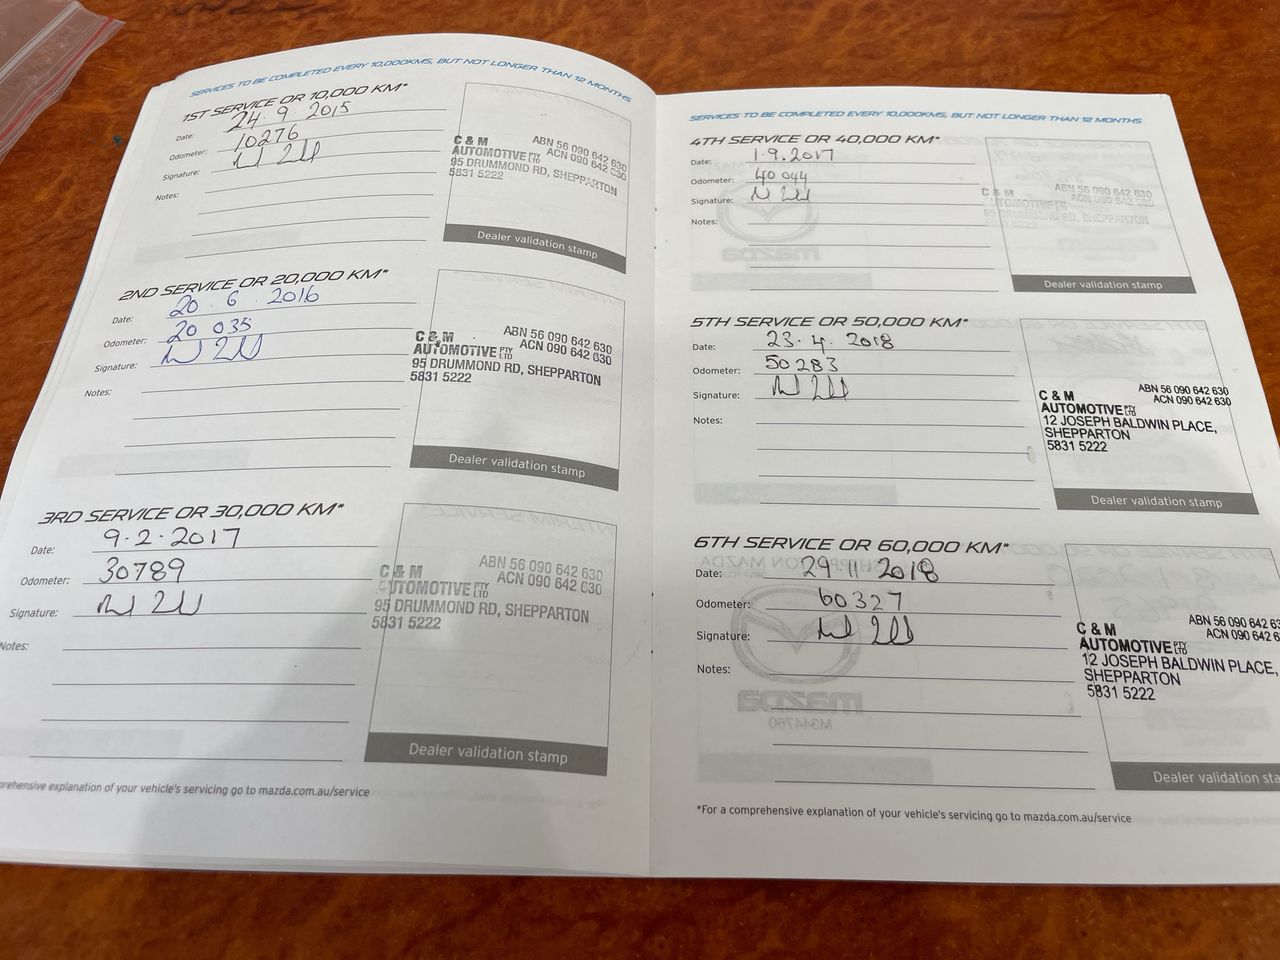 SERVICES TO BE COMPLETED EVERY 10,000KMS, BUT NOT LONGER THAN 12 MONTHS
1ST SERVICE OR 10,000 KM*
Date: 24·9·2015
Odometer: 10276
Signature:
Notes:
C & M ABN 56 090 642 630
AUTOMOTIVE PTY LTD ACN 090 642 630
95 DRUMMOND RD, SHEPPARTON
5831 5222
Dealer validation stamp
2ND SERVICE OR 20,000 KM*
Date: 20·6·2016
Odometer: 20 035
Signature:
Notes:
C & M ABN 56 090 642 630
AUTOMOTIVE PTY LTD ACN 090 642 630
95 DRUMMOND RD, SHEPPARTON
5831 5222
Dealer validation stamp
3RD SERVICE OR 30,000 KM*
Date: 9·2·2017
Odometer: 30789
Signature:
Notes:
C & M ABN 56 090 642 630
AUTOMOTIVE PTY LTD ACN 090 642 630
95 DRUMMOND RD, SHEPPARTON
5831 5222
Dealer validation stamp
explanation of your vehicle's servicing go to mazda.com.au/service
SERVICES TO BE COMPLETED EVERY 10,000KMS, BUT NOT LONGER THAN 12 MONTHS
4TH SERVICE OR 40,000 KM*
Date: 1·9·2017
Odometer: 40 044
Signature:
Notes:
C & M ABN 56 090 642 630
AUTOMOTIVE PTY LTD ACN 090 642 630
95 DRUMMOND RD, SHEPPARTON
5831 5222
Dealer validation stamp
5TH SERVICE OR 50,000 KM*
Date: 23·4·2018
Odometer: 50 283
Signature:
Notes:
C & M ABN 56 090 642 630
AUTOMOTIVE PTY LTD ACN 090 642 630
12 JOSEPH BALDWIN PLACE,
SHEPPARTON
5831 5222
Dealer validation stamp
6TH SERVICE OR 60,000 KM*
Date: 29·11·2018
Odometer: 60327
Signature:
Notes:
C & M ABN 56 090 642 63
AUTOMOTIVE PTY LTD ACN 090 642 6
12 JOSEPH BALDWIN PLACE,
SHEPPARTON
5831 5222
Dealer validation sta
*For a comprehensive explanation of your vehicle's servicing go to mazda.com.au/service